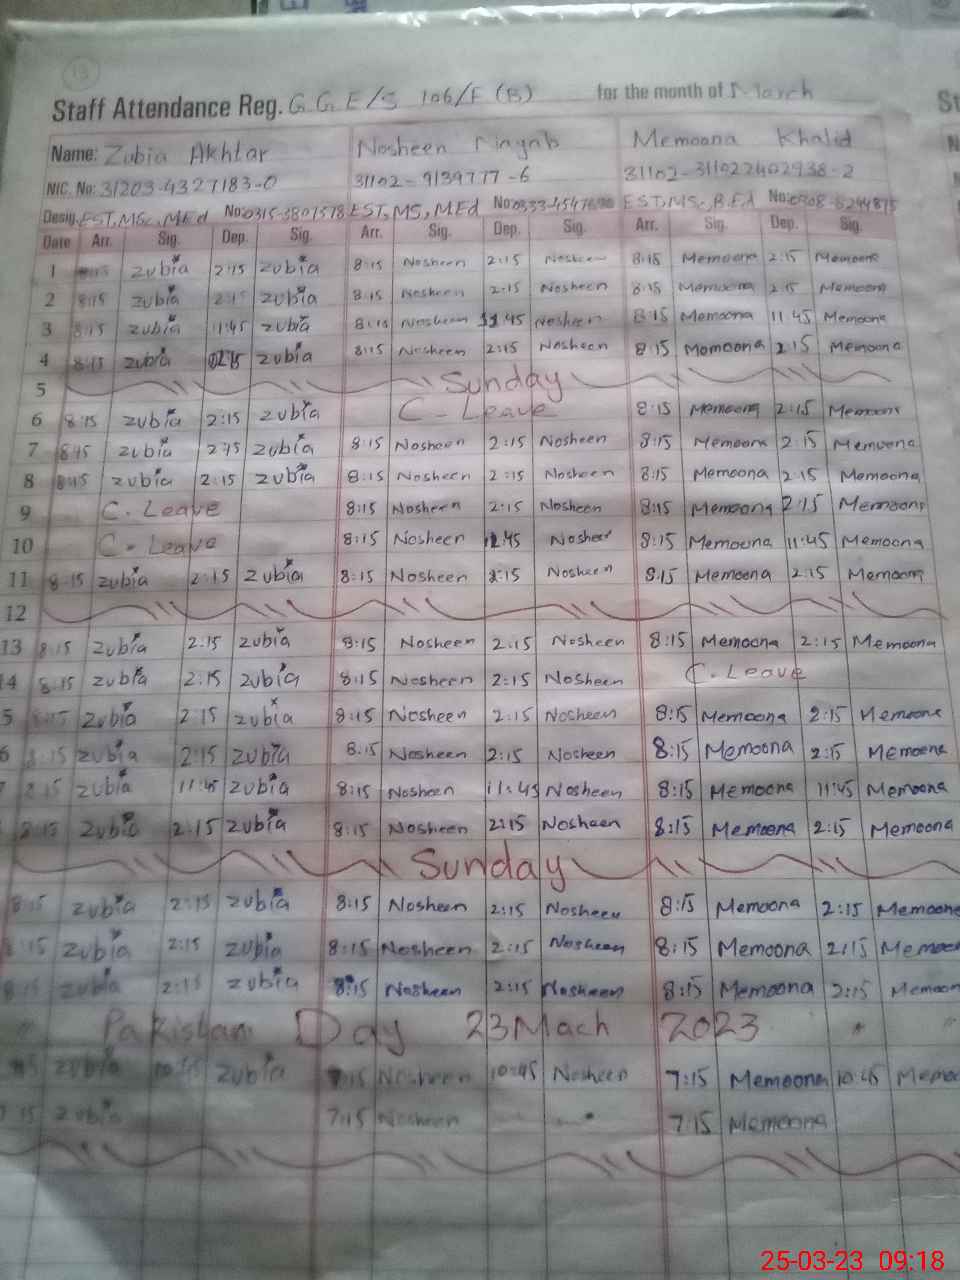 13
Staff Attendance Reg. G G E/S 106/F (B) for the month of March
Name: Zubia Akhtar Nosheen Memoona Khalid
NIC. No: 31203-4327183-0 31102-9139777-6 31102-311022402938-2
Desig. EST, MSc, MEd No: 0315-3801578 EST, MS, MEd No: EST, MSc, B.Ed No: 0308-8244875
Date Arr. Sig. Dep. Sig. Arr. Sig. Dep. Sig. Arr. Sig. Dep. Sig.
1 8:15 zubia 2:15 zubia 8:15 Nosheen 2:15 Nosheen 8:15 Memoona 2:15 Memoona
2 8:15 zubia 2:15 zubia 8:15 Nosheen 2:15 Nosheen 8:15 Memoona 2:15 Memoona
3 8:15 zubia 11:45 zubia 8:15 Nosheen 11:45 Nosheen 8:15 Memoona 11:45 Memoona
4 8:15 zubia 02:15 zubia 8:15 Nosheen 2:15 Nosheen 8:15 Momoona 2:15 Memoona
5 Sunday
6 8:15 zubia 2:15 zubia C-Leave 8:15 Memoona 2:15 Memoona
7 8:15 zubia 2:15 zubia 8:15 Nosheen 2:15 Nosheen 8:15 Memoona 2:15 Memoona
8 8:15 zubia 2:15 zubia 8:15 Nosheen 2:15 Nosheen 8:15 Memoona 2:15 Memoona
9 C. Leave 8:15 Nosheen 2:15 Nosheen 8:15 Memoona 2:15 Memoona
10 C-Leave 8:15 Nosheen 8:15 Memoona 11:45 Memoona
11 8:15 zubia 2:15 zubia 8:15 Nosheen 2:15 Nosheen 8:15 Memoona 2:15 Memoona
12
13 8:15 zubia 2:15 zubia 8:15 Nosheen 2:15 Nosheen 8:15 Memoona 2:15 Memoona
4 8:15 zubia 2:15 zubia 8:15 Nosheen 2:15 Nosheen C. Leave
5 8:15 zubia 2:15 zubia 8:15 Nosheen 2:15 Nosheen 8:15 Memoona 2:15 Memoona
6 8:15 zubia 2:15 zubia 8:15 Nosheen 2:15 Nosheen 8:15 Memoona 2:15 Memoona
zubia 11:45 zubia 8:15 Nosheen 11:45 Nosheen 8:15 Memoona 11:45 Memoona
8:15 zubia 2:15 zubia 8:15 Nosheen 2:15 Nosheen 8:15 Memoona 2:15 Memoona
Sunday
8:15 zubia 2:15 zubia 8:15 Nosheen 2:15 Nosheen 8:15 Memoona 2:15 Memoona
8:15 zubia 2:15 zubia 8:15 Nosheen 2:15 Nosheen 8:15 Memoona 2:15 Memoon
8:15 zubia 2:15 zubia 8:15 Nosheen 2:15 Nosheen 8:15 Memoona 2:15 Memoon
Pakistan Day 23 Mach 2023 " "
zubia zubia 7:15 Nosheen 10:45 Nosheen 7:15 Memoona 10:45 Memoo
7:15 zubia 7:15 Nosheen 7:15 Memoona
25-03-23 09:18